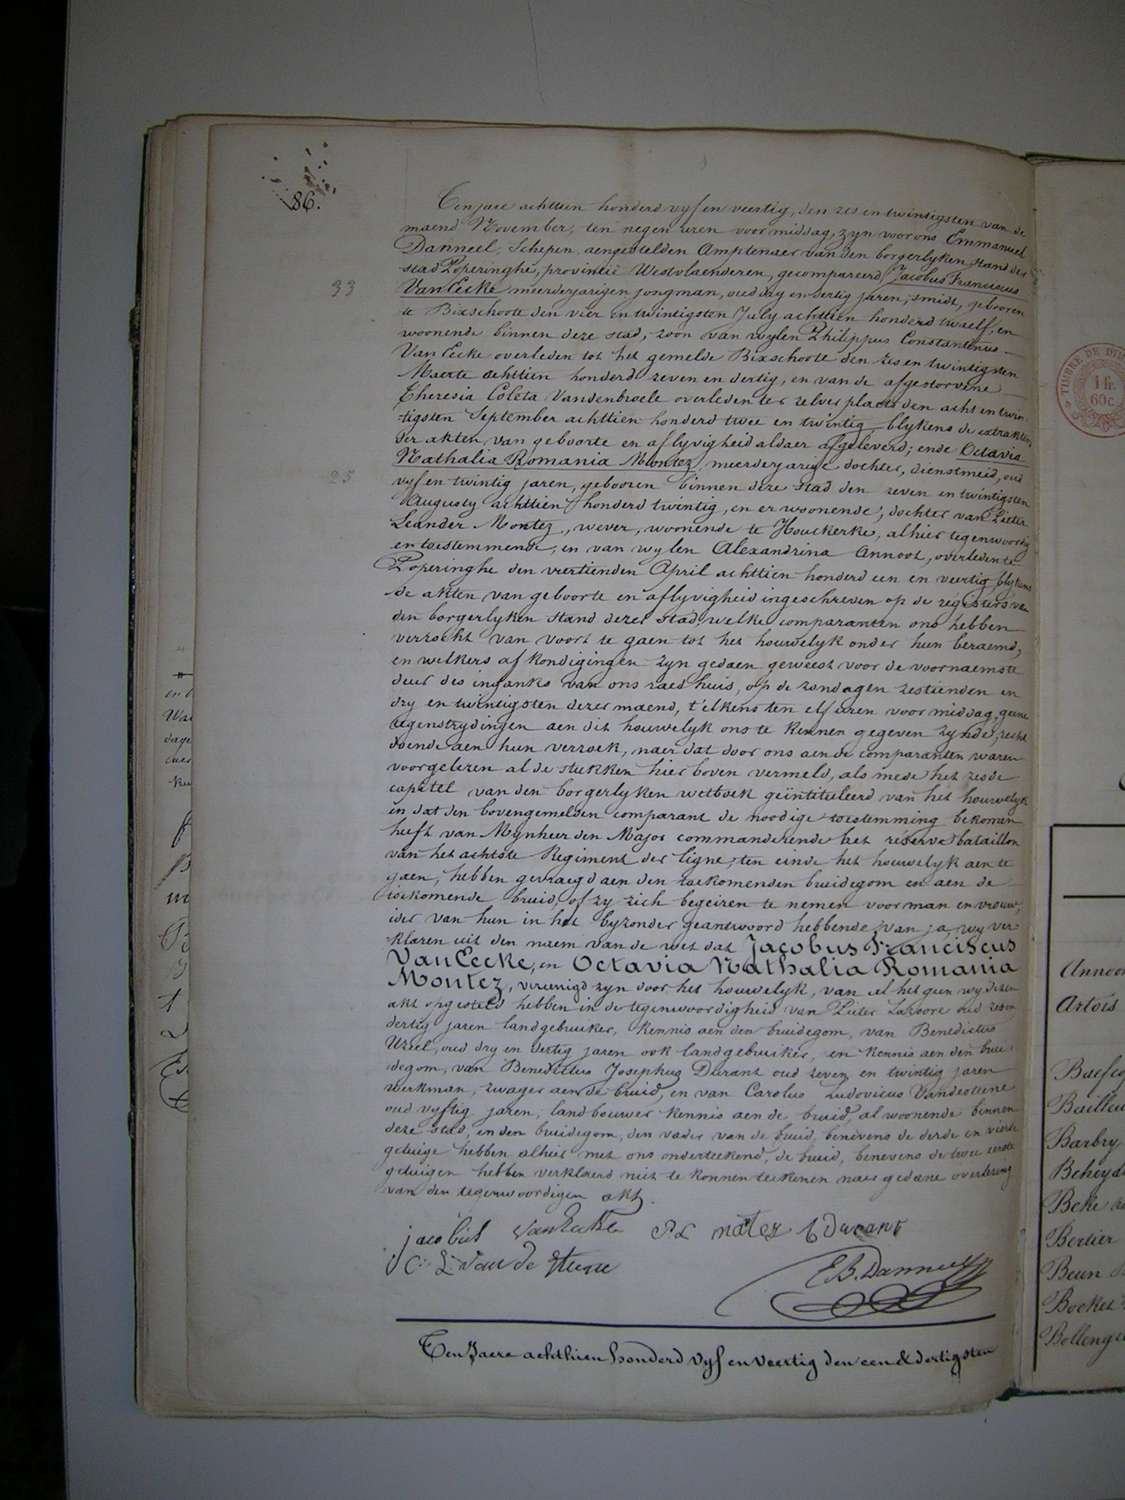 86.
Ten jare achttien honderd vyf en veertig, den zes en twintigsten van de
maend November, ten negen uren voormiddag, zyn voor ons Emmanuel
Danneel, Schepen, aengestelden Amptenaer van den borgerlyken stand der
stad Poperinghe, provintie Westvlaenderen, gecompareerd Jacobus Franciscus
33
Van Eecke meerderjarigen jongman, oud dry en dertig jaren, smidt, geboren
te Bixschoote den vier en twintigsten July achttien honderd twaelf, en
woonende binnen deze stad, zoon van wylen Philippus Constantinus
Van Eecke overleden tot het gemelde Bixschoote den zes en twintigsten
Maerte achttien honderd zeven en dertig, en van de afgestorvene
Theresia Coleta Vandenbroele overleden ter zelver plaets den acht en twin-
tigsten September achttien honderd twee en twintig blykens de extrakten
der akten van geboorte en aflyvigheid aldaer afgeleverd; ende Octavia
Nathalia Romania Montez, meerderjarige dochter, dienstmeid, oud
25
vyf en twintig jaren, geboren binnen deze stad den zeven en twintigsten
Augusty achttien honderd twintig, en er woonende, dochter van Pieter
Leander Montez, wever, woonende te Houckerke, alhier tegenwoordig
en toestemmende, en van wylen Alexandrina Annoot, overleden te
Poperinghe den veertienden April achttien honderd een en veertig, blykens
de akten van geboorte en aflyvigheid ingeschreven op de registers van
den borgerlyken stand dezer stad, welke comparanten ons hebben
verzocht van voort te gaen tot het houwelyk onder hun beraemd,
en welkers afkondigingen zyn gedaen geweest voor de voornaemste
deur des inganks van ons raedhuis, op de zondagen zestienden en
dry en twintigsten dezer maend, t'elkens ten elf uren voormiddag, geene
tegenstrydingen aen dit houwelyk ons te kennen gegeven zynde, recht
doende aen hun verzoek, naer dat door ons aen de comparanten waren
voorgelezen al de stukken hier boven vermeld, als mede het zesde
capitel van den borgerlyken wetboek geïntituleerd van het houwelyk
en dat den bovengemelden comparant de noodige toestemming bekomen
heeft van Mynheer den Major commanderende het réserve bataillon
van het achtste Regiment der ligne, ten einde het houwelyk aen te
gaen, hebben gevraegd aen den toekomenden bruidegom en aen de
toekomende bruid, of zy zich begeiren te nemen voor man en vrouw,
ider van hun in het byzonder geantwoord hebbende van ja, wy ver-
klaren uit den naem van de wet dat Jacobus Franciscus
Van Eecke, en Octavia Nathalia Romania
Montez, vereenigd zyn door het houwelyk, van al het geen wy dezen
akt opgesteld hebben in de tegenwoordigheid van Pieter oud
dertig jaren landgebruiker, kennis aen den bruidegom, van Benedictus
oud dry en dertig jaren ook landgebruiker, en kennis aen den brui-
degom, van Benedictus Josephus Durant oud zeven en twintig jaren
werkman, zwager aen de bruid, en van Carolus Ludovicus
oud vyftig jaren, landbouwer kennis aen de bruid, al woonende binnen
deze stad, en den bruidegom, den vader van de bruid, benevens de derde en vierde
getuige hebben alhier met ons onderteekend, de bruid, benevens de twee eerste
getuigen hebben verklaerd niet te konnen teekenen naer gedaene overlezing
van den tegenwoordigen akt.
jacobus Van Eecke P L B Durant
C: L: Van de
E B. Danneel
Ten Jaere achthien honderd vyf en veertig den een & dertigsten
TIMBRE DE DIM
1 fr.
60 c.
Annoot
Artois
Baefcop
Bailleu
Barbry
Beheydt
Beke
Bertier
Beun
Bocket
Bollenge